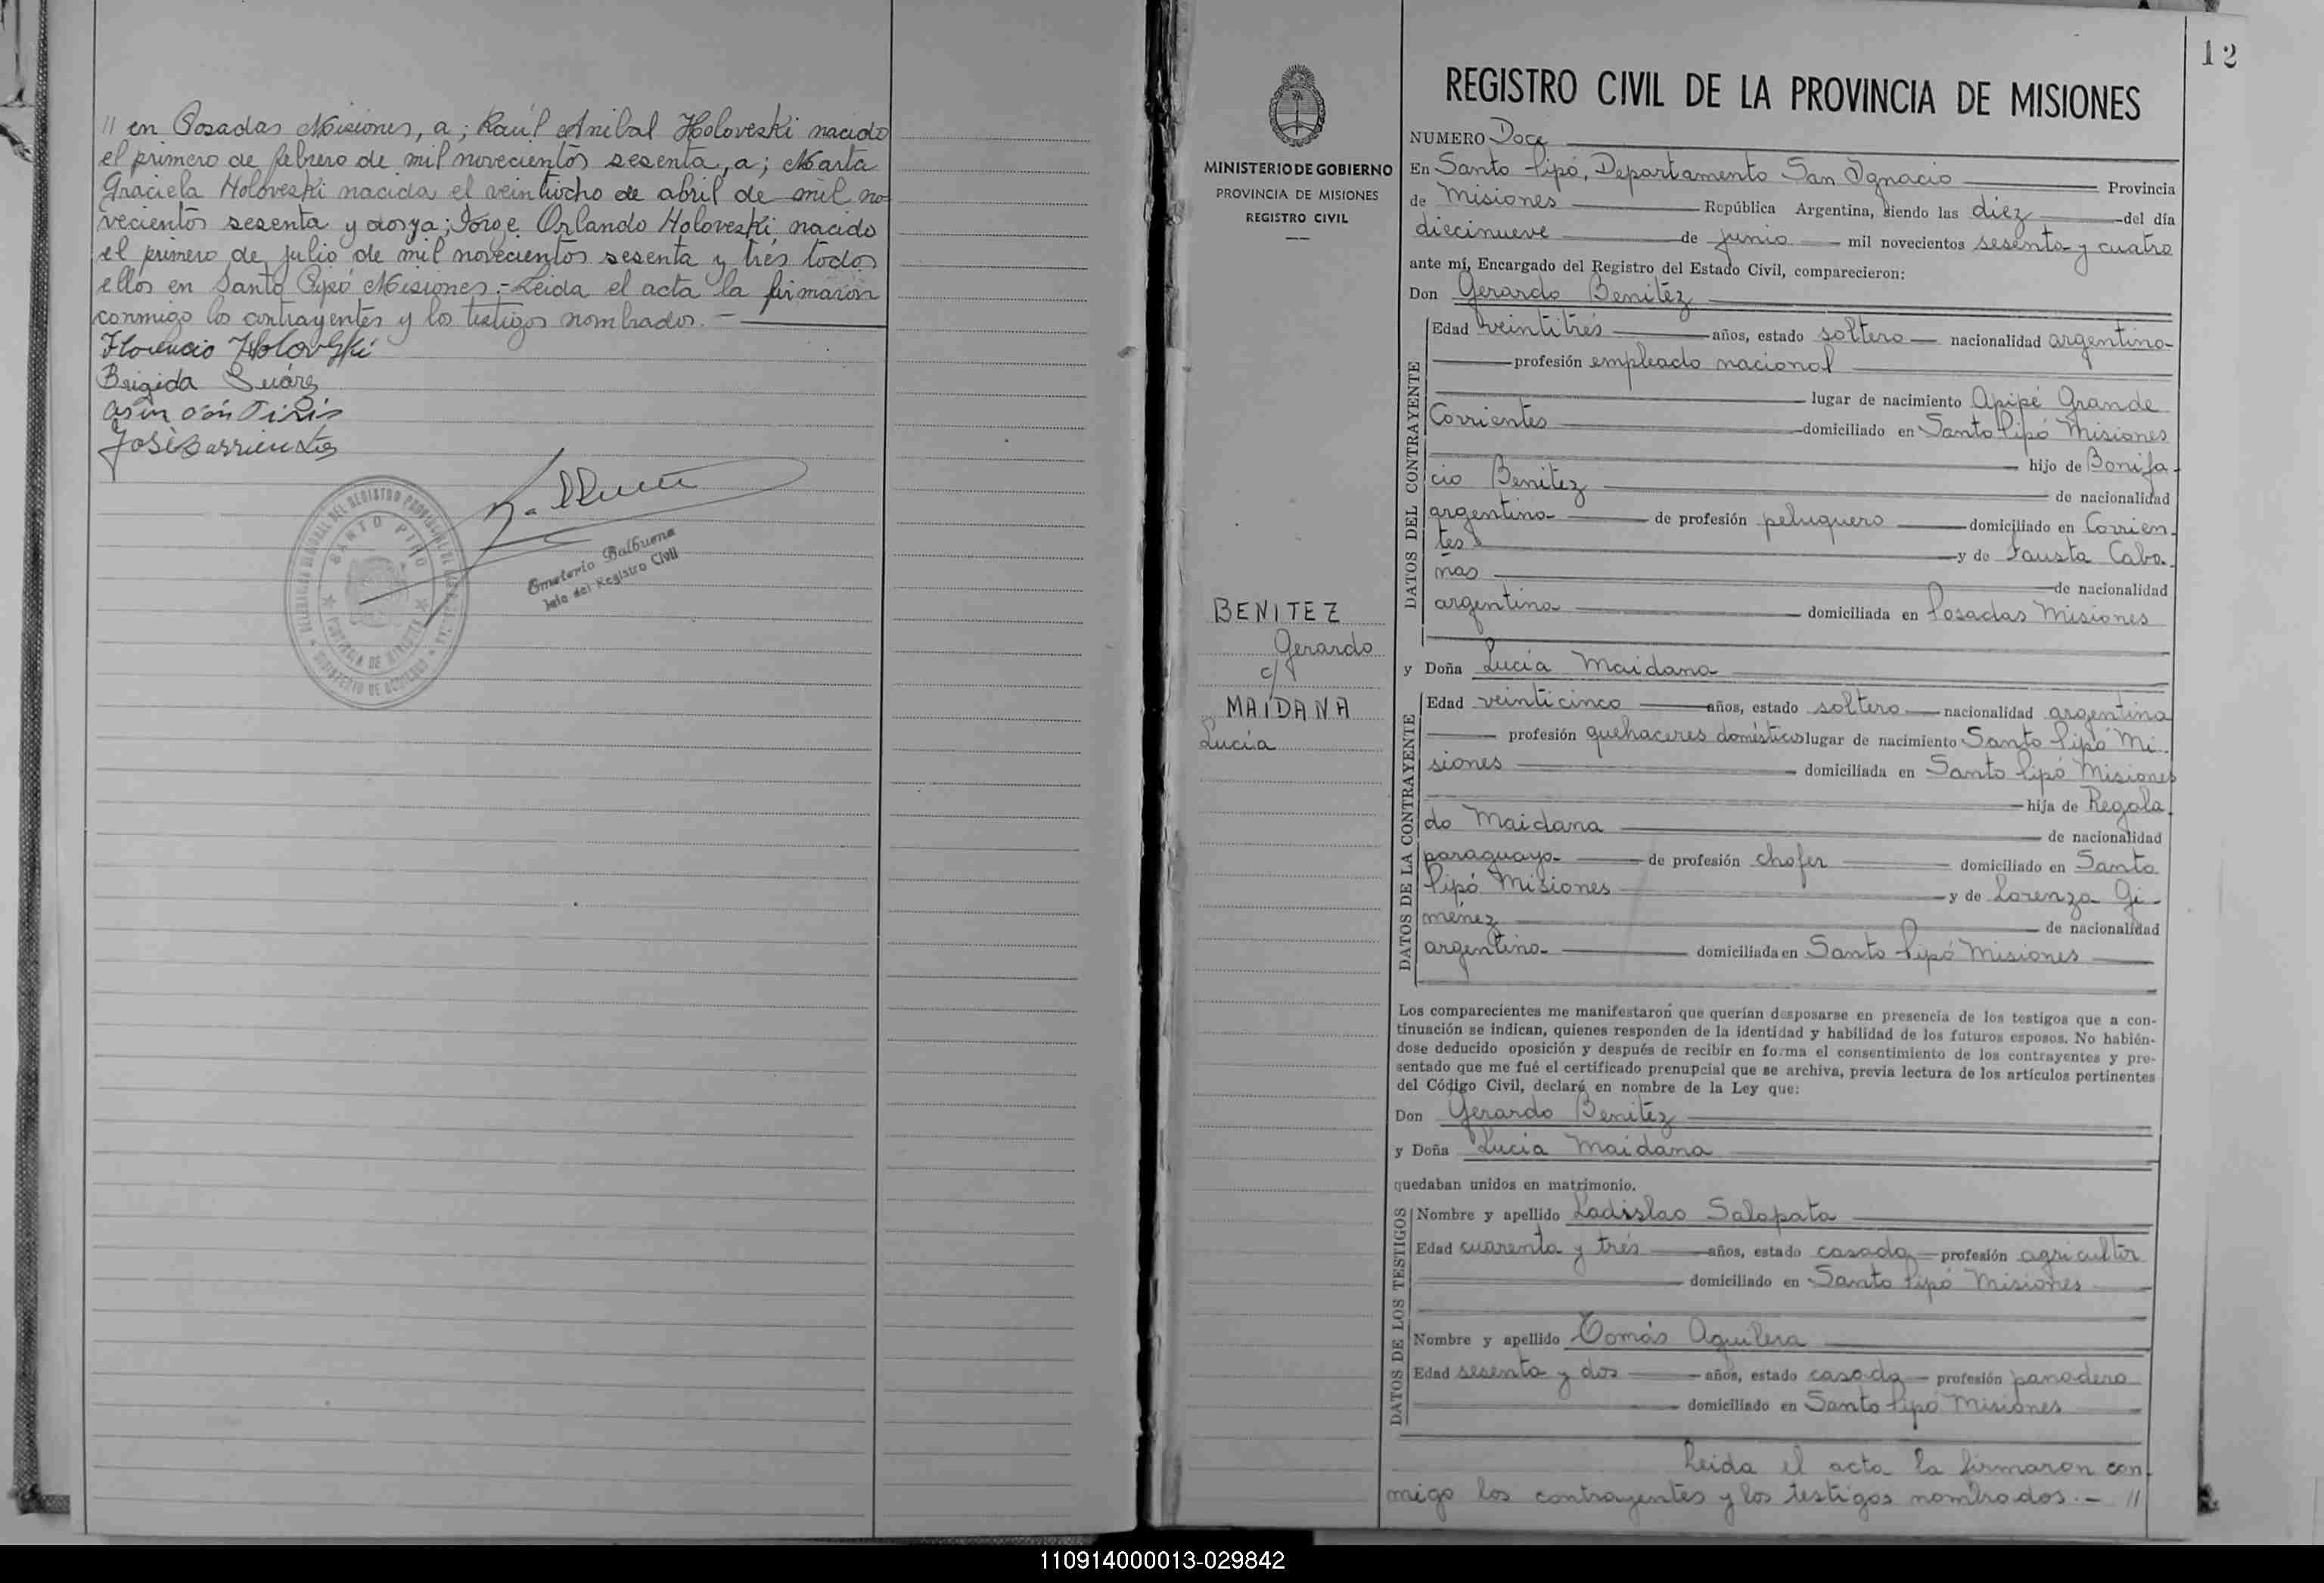 // en Posadas Misiones, a; Raúl Anibal Holoveski nacido
el primero de febrero de mil novecientos sesenta, a; Marta
Graciela Holoveski nacida el veintiocho de abril de mil no-
vecientos sesenta y dos y a; Jorge Orlando Holoveski nacido
el primero de julio de mil novecientos sesenta y trés todos
ellos en Santo Pipó Misiones.- Leida el acta la firmaron
conmigo los contrayentes y los testigos nombrados. -
Florencio Holovski
Brigida Suárez
José Barrientos
SANTO PIPO
PROVINCIA DE MISIONES
Emeterio Balbuena
Jefe del Registro Civil
12
MINISTERIO DE GOBIERNO
PROVINCIA DE MISIONES
REGISTRO CIVIL
BENITEZ
Gerardo
c/
MAIDANA
Lucía
REGISTRO CIVIL DE LA PROVINCIA DE MISIONES
NUMERO Doce
En Santo Pipó, Departamento San Ignacio Provincia
de Misiones República Argentina, siendo las diez del día
diecinueve de junio mil novecientos sesenta y cuatro
ante mí, Encargado del Registro del Estado Civil, comparecieron:
Don Gerardo Benitez
DATOS DEL CONTRAYENTE
Edad veintitrés años, estado soltero nacionalidad argentino
profesión empleado nacional
lugar de nacimiento Apipé Grande
Corrientes domiciliado en Santo Pipó Misiones
hijo de Bonifa-
cio Benitez de nacionalidad
argentino de profesión peluquero domiciliado en Corrien-
tes y de Fausta Caba-
ñas de nacionalidad
argentina domiciliada en Posadas Misiones
y Doña Lucía Maidana
DATOS DE LA CONTRAYENTE
Edad veinticinco años, estado soltera nacionalidad argentina
profesión quehaceres domésticos lugar de nacimiento Santo Pipó Mi-
siones domiciliada en Santo Pipó Misiones
hija de Regala-
do Maidana de nacionalidad
paraguayo de profesión chofer domiciliado en Santo
Pipó Misiones y de Lorenza Gi-
ménez de nacionalidad
argentina domiciliada en Santo Pipó Misiones
Los comparecientes me manifestaron que querían desposarse en presencia de los testigos que a con-
tinuación se indican, quienes responden de la identidad y habilidad de los futuros esposos. No habién-
dose deducido oposición y después de recibir en forma el consentimiento de los contrayentes y pre-
sentado que me fué el certificado prenupcial que se archiva, previa lectura de los artículos pertinentes
del Código Civil, declaré en nombre de la Ley que:
Don Gerardo Benitez
y Doña Lucía Maidana
quedaban unidos en matrimonio.
DATOS DE LOS TESTIGOS
Nombre y apellido Ladislao Salopata
Edad cuarenta y trés años, estado casado profesión agricultor
domiciliado en Santo Pipó Misiones
Nombre y apellido Tomás Aguilera
Edad sesenta y dos años, estado casado profesión panadero
domiciliado en Santo Pipó Misiones
Leida el acta la firmaron con-
migo los contrayentes y los testigos nombrados. - //
110914000013-029842